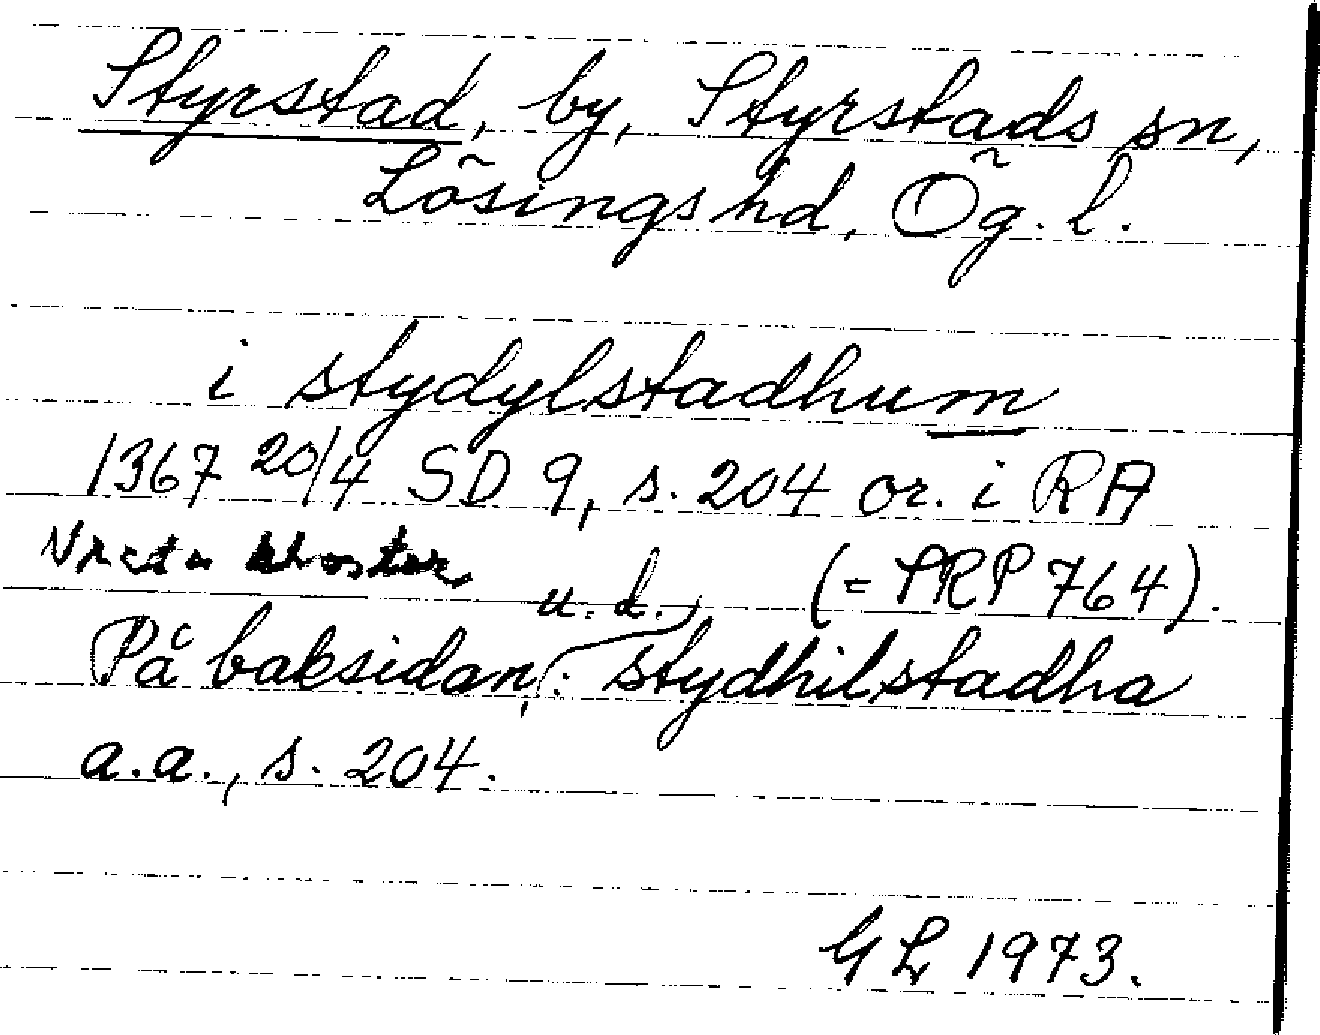 Styrstad, by, Styrstads sn,
Lösings hd, Ög. l.
i stydylstadhum
1367 20/4 SD 9, s. 204 or. i RA
Vreta kloster (= SRP 764).
u. d.,
På baksidan, : stydhilstadha
a.a., s. 204.
GL 1973.